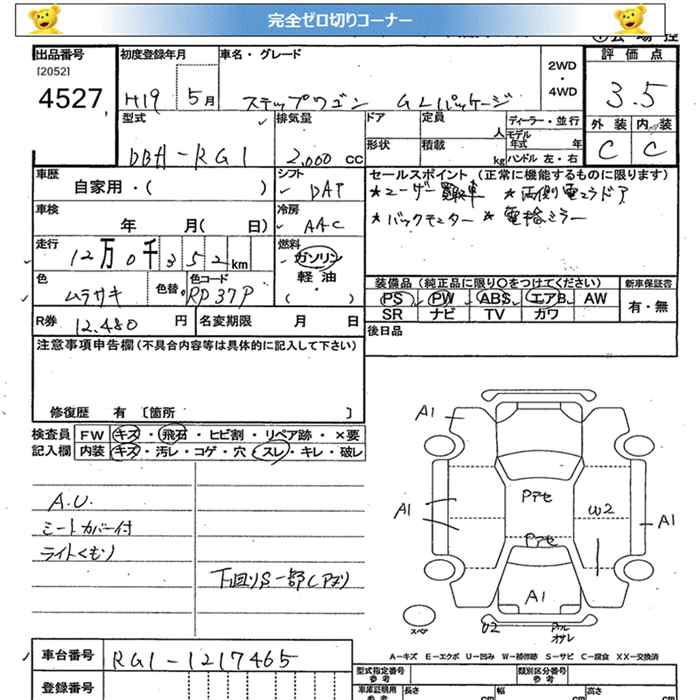 完全ゼロ切りコーナー
出品番号 初度登録年月 車名・グレード 評価点
[2052] 2WD・4WD
4527 H19 5月 ステップワゴン GLパッケージ 3.5
型式 排気量 ドア 定員 人 ディーラー・並行 外装 内装
モデル年式 年
DBA-RG1 2,000 cc 形状 積載 kg ハンドル 左・右 C C
車歴 シフト セールスポイント (正常に機能するものに限ります)
自家用・( ) DAT ★ユーザー買取車 ★両側電スラドア
車検 冷房 ★バックモニター ★電格ミラー
年 月( 日) AAC
走行 燃料
12万0千352km ガソリン
色 色替 色コード 軽油 装備品 (純正品に限り○をつけてください) 新車保証書
ムラサキ RP37P ( ) PS PW ABS エアB AW 有・無
R券 12,480円 名変期限 月 日 SR ナビ TV カワ
後日品
注意事項申告欄(不具合内容等は具体的に記入して下さい)
修復歴 有 [箇所 ]
検査員 FW キズ・飛石・ヒビ割・リペア跡・×要
記入欄 内装 キズ・汚レ・コゲ・穴・スレ・キレ・破レ
A.U.
シートカバー付
ライトくもり
下回りS一部C
A1
A1
Pアセ
W2
A1
Pアセ
A1
スペア
U2
A－キズ E－エクボ U－凹み W－補修跡 S－サビ C－腐食 XX－交換済
車台番号 RG1-1217465
登録番号
型式指定番号 参考 類別区分番号 参考
車庫証明用 参考 長さ cm 幅 cm 高さ cm